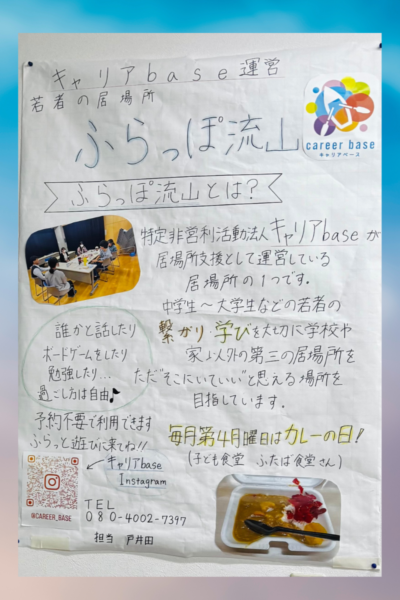 キャリアbase運営
若者の居場所
ふらっぽ流山
career base
キャリアベース
ふらっぽ流山とは?
特定非営利活動法人キャリアbaseが
居場所支援として運営している
居場所の1つです。
中学生〜大学生などの若者の
繋がり・学びを大切に学校や
家以外の第三の居場所を
ただ"そこにいていい"と思える場所を
目指しています。
誰かと話したり
ボードゲームをしたり
勉強したり...
過ごし方は自由♪
予約不要で利用できます
ふらっと遊びに来てね!!
毎月第4月曜日はカレーの日!
(子ども食堂 ふたば食堂さん)
キャリアbase
Instagram
@CAREER_BASE
TEL
080-4002-7397
担当 戸井田